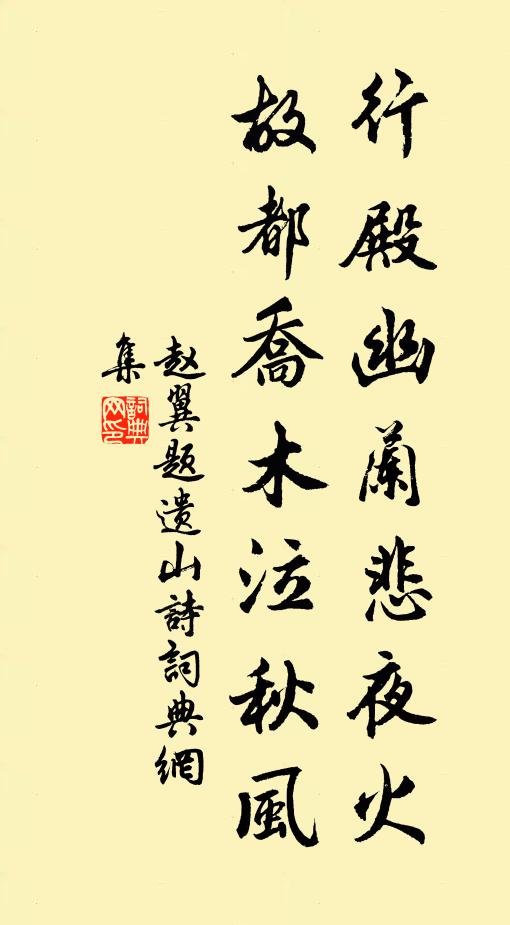 行殿幽蘭悲夜火
故都喬木泣秋風
赵翼题遗山詩詞典網
集
詞典
网印